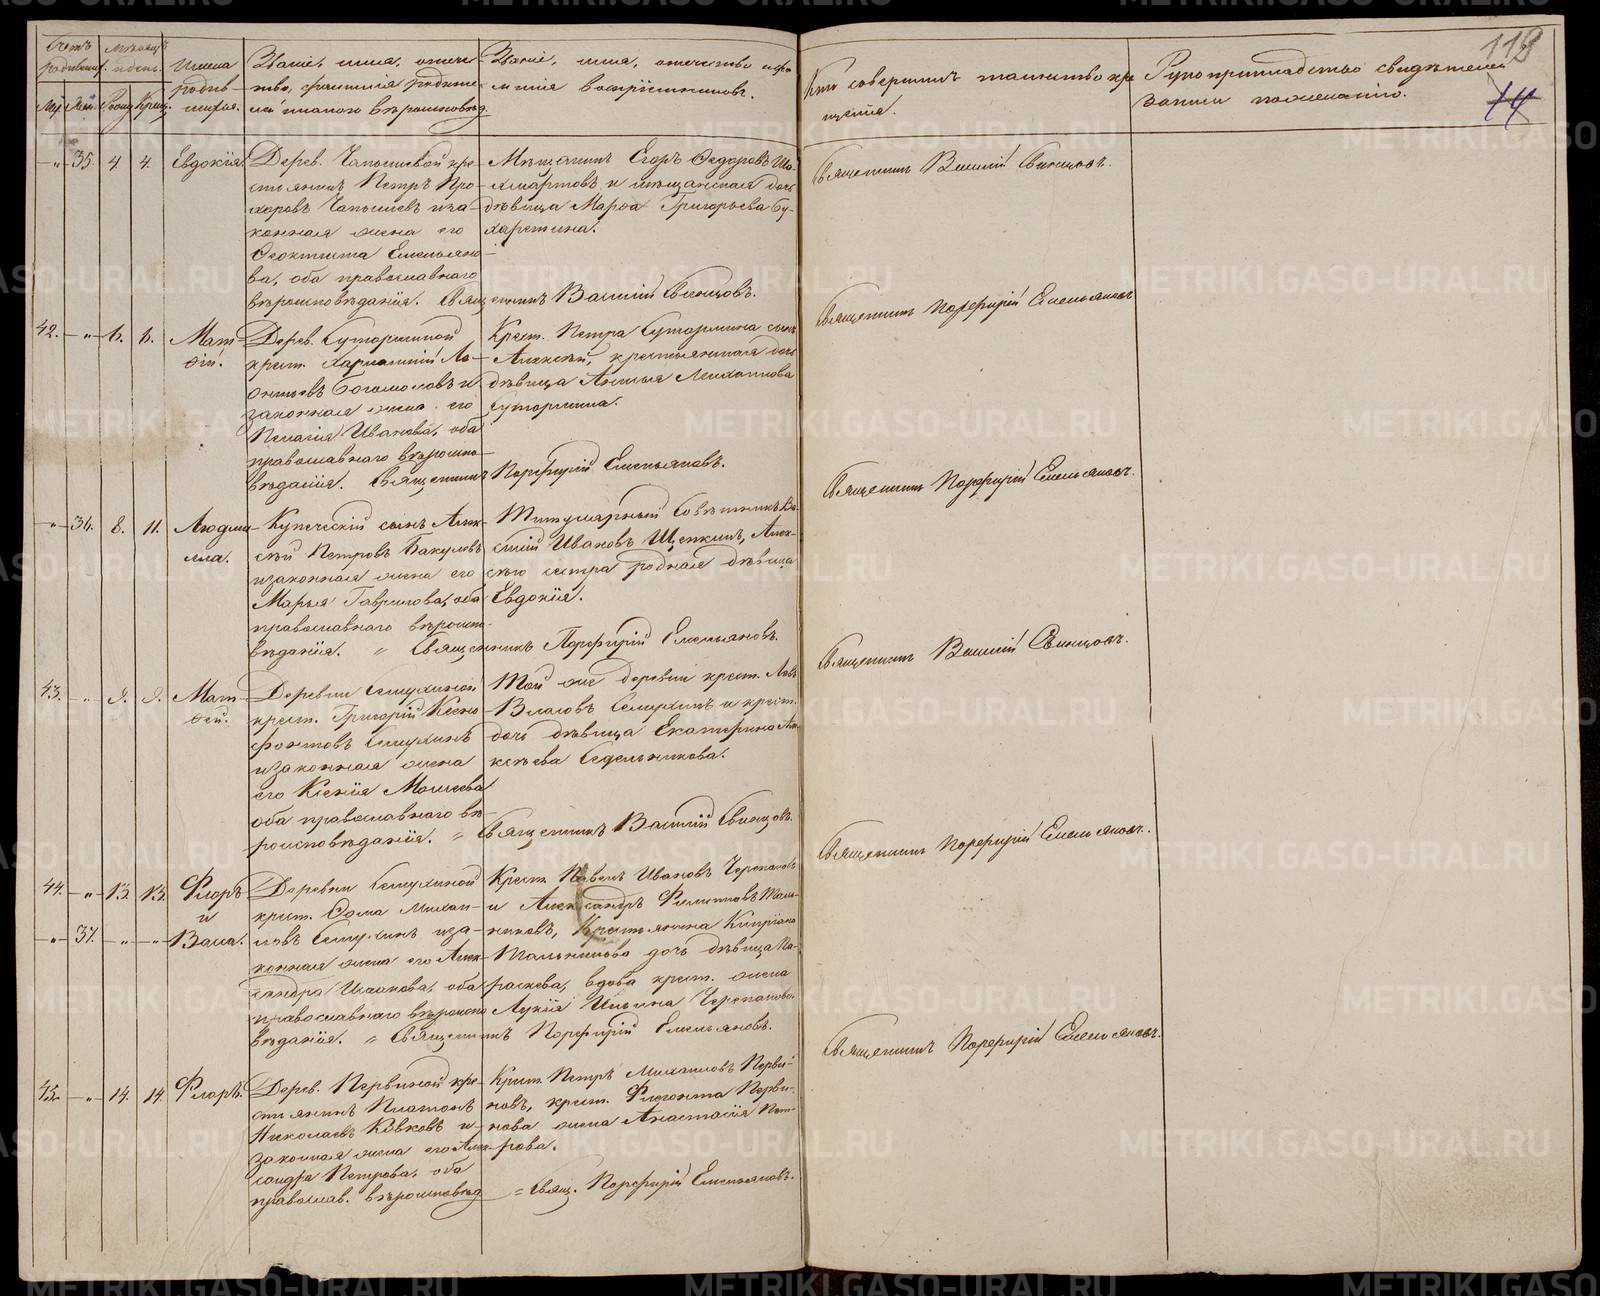 Счетъ родившихся.
Муж. Жен.
Мѣсяцъ и день.
Рожд. Крещ.
Имена родив-
шихся.
Званіе, имя, отече-
ство, фамилія родите-
лей и какого вѣроисповѣд.
Званіе, имя, отчество и фа-
милія воспріемниковъ.
Кто совершилъ таинство кре-
щенія.
Рукоприкладство свидѣтелей
записи по желанію.
119
14
35. 4. 4. Евдокія.
Дерев. Чапышевой кре-
стьянинъ Петръ Про-
хоровъ Чапышевъ и за-
конная жена его
Ѳеоктиста Емельяно-
ва, оба православнаго
вѣроисповѣданія. Священникъ Василій Свинцовъ.
Мѣщанинъ Егоръ Ѳедоровъ
и мѣщанская дочь
дѣвица Марѳа Григорьева Бу-
харкина.
Священникъ Василій Свинцовъ.
42. 6. 6. Мат-
ѳій.
Дерев. Суторминой
крест. Харлампій Ле-
онтьевъ Богомоловъ и
законная жена его
Пелагія Иванова, оба
православнаго вѣроиспо-
вѣданія. Священникъ Порфирій Емельяновъ.
Крест. Петра Сутормина сынъ
Алексѣй, крестьянская дочь
дѣвица Анна Михайлова
Сутормина.
Священникъ Порфирій Емельяновъ.
36. 8. 11. Людми-
лла.
Купеческій сынъ Алек-
сѣй Петровъ Бакулевъ
и законная жена его
Марья Гаврилова, оба
православнаго вѣроиспо-
вѣданія. Священникъ Порфирій Емельяновъ.
Титулярный Совѣтникъ Ва-
силій Ивановъ Щепкинъ, Алек-
сѣю сестра родная дѣвица
Евдокія.
Священникъ Порфирій Емельяновъ.
43. 9. 9. Мат-
ѳей.
Деревни Семухиной
крест. Григорій Ксено-
фонтовъ Семухинъ
и законная жена
его Ксенія Моисеева
оба православнаго вѣ-
роисповѣданія. Священникъ Василій Свинцовъ.
Той же деревни крест. Левъ
Власовъ Семухинъ и крест.
дочь дѣвица Екатерина Але-
ксѣева Седельникова.
Священникъ Василій Свинцовъ.
44. 13. 13. Флоръ
и
37. Васса.
Деревни Семухиной
крест. Ѳома Михай-
ловъ Семухинъ и за-
конная жена его Алек-
сандра Исакова, оба
православнаго вѣроиспо-
вѣданія. Священникъ Порфирій Емельяновъ.
Крест. Павелъ Ивановъ Черепановъ
и Александръ Филипповъ
Крестьянина Кипріана
дочь дѣвица Па-
раскева, вдова крест. жена
Лукія Ильина Черепанова.
Священникъ Порфирій Емельяновъ.
45. 14. 14. Флоръ.
Дерев. Первиной кре-
стьянинъ Платонъ
Николаевъ Ковковъ и
законная жена его Алек-
сандра Петрова, оба
православ. вѣроисповѣд.
Крест. Петръ Михайловъ Перви-
новъ, крест. Перви-
нова жена Анастасія Пет-
рова.
Свящ. Порфирій Емельяновъ.
Священникъ Порфирій Емельяновъ.
METRIKI.GASO-URAL.RU